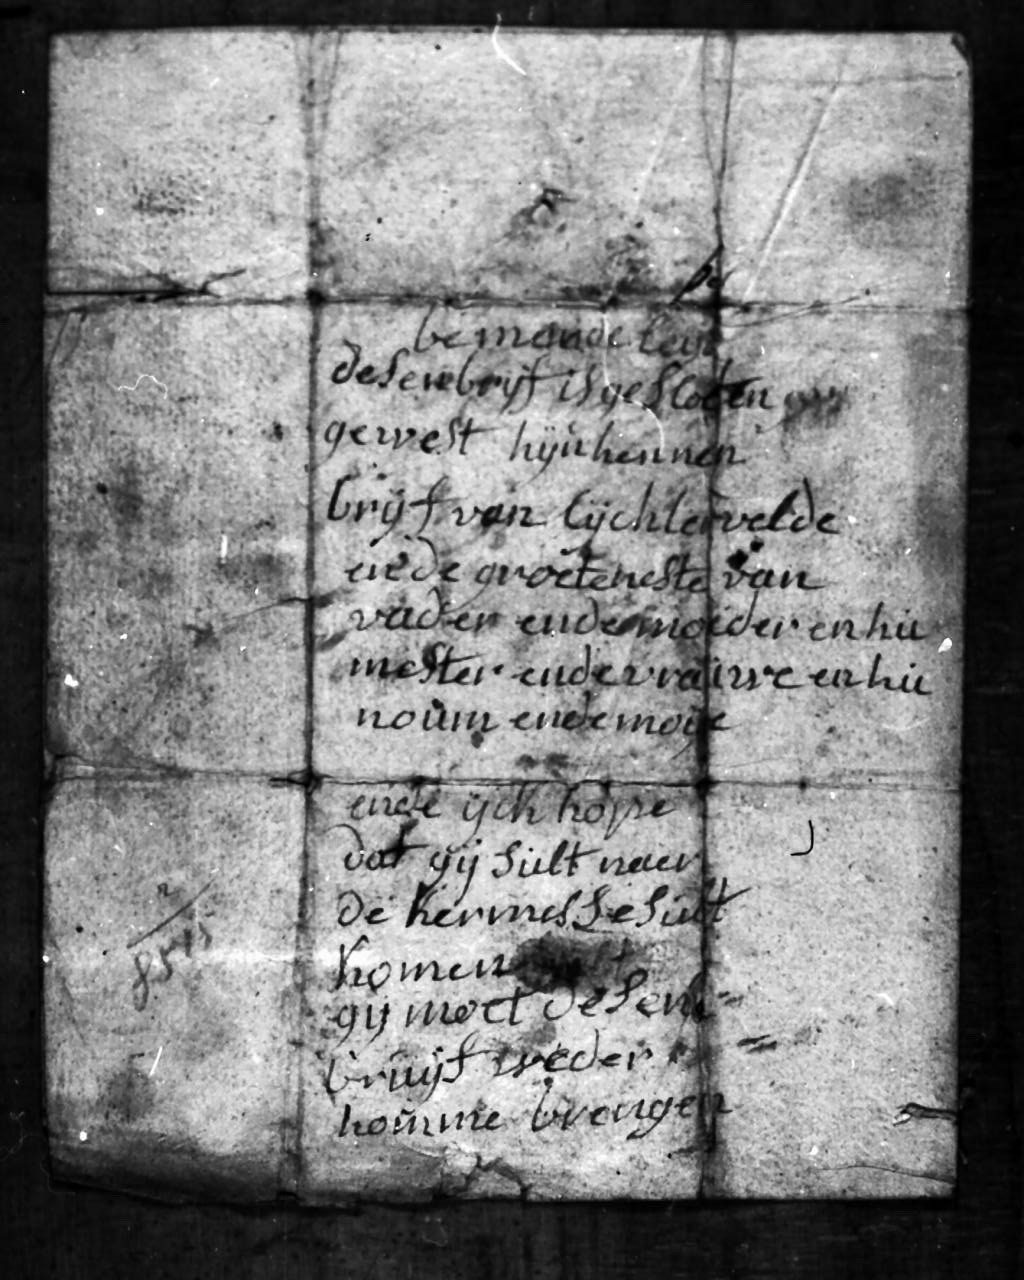 bemonde
desen brijf is gesloten
gewest hijn hennen
brijf van lijchtervelde
ende groeteneste van
vader ende moider en hu
mester ende vrauwe en hu
noům ende moije
ende ijch hope
dat gij sult naer
de kermesse sult
komen
gij moet desen
bruijf weder
homme brengen